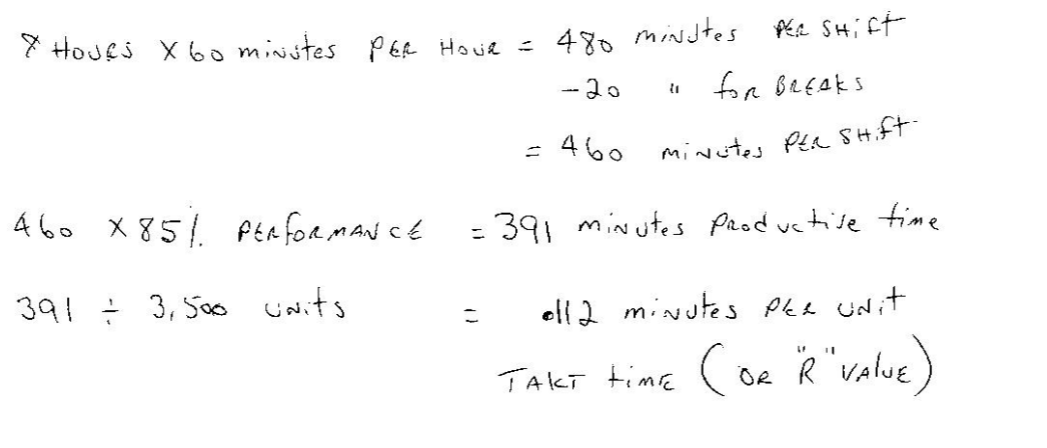 8 Hours X 60 minutes PER Hour = 480 minutes PER SHift
-20 " for BREAKS
= 460 minutes PER SHift
460 X 85% PERfORMANCE = 391 minutes Productive time
391 ÷ 3,500 UNits = .112 minutes PER UNit
TAKT time (OR "R" VALUE)